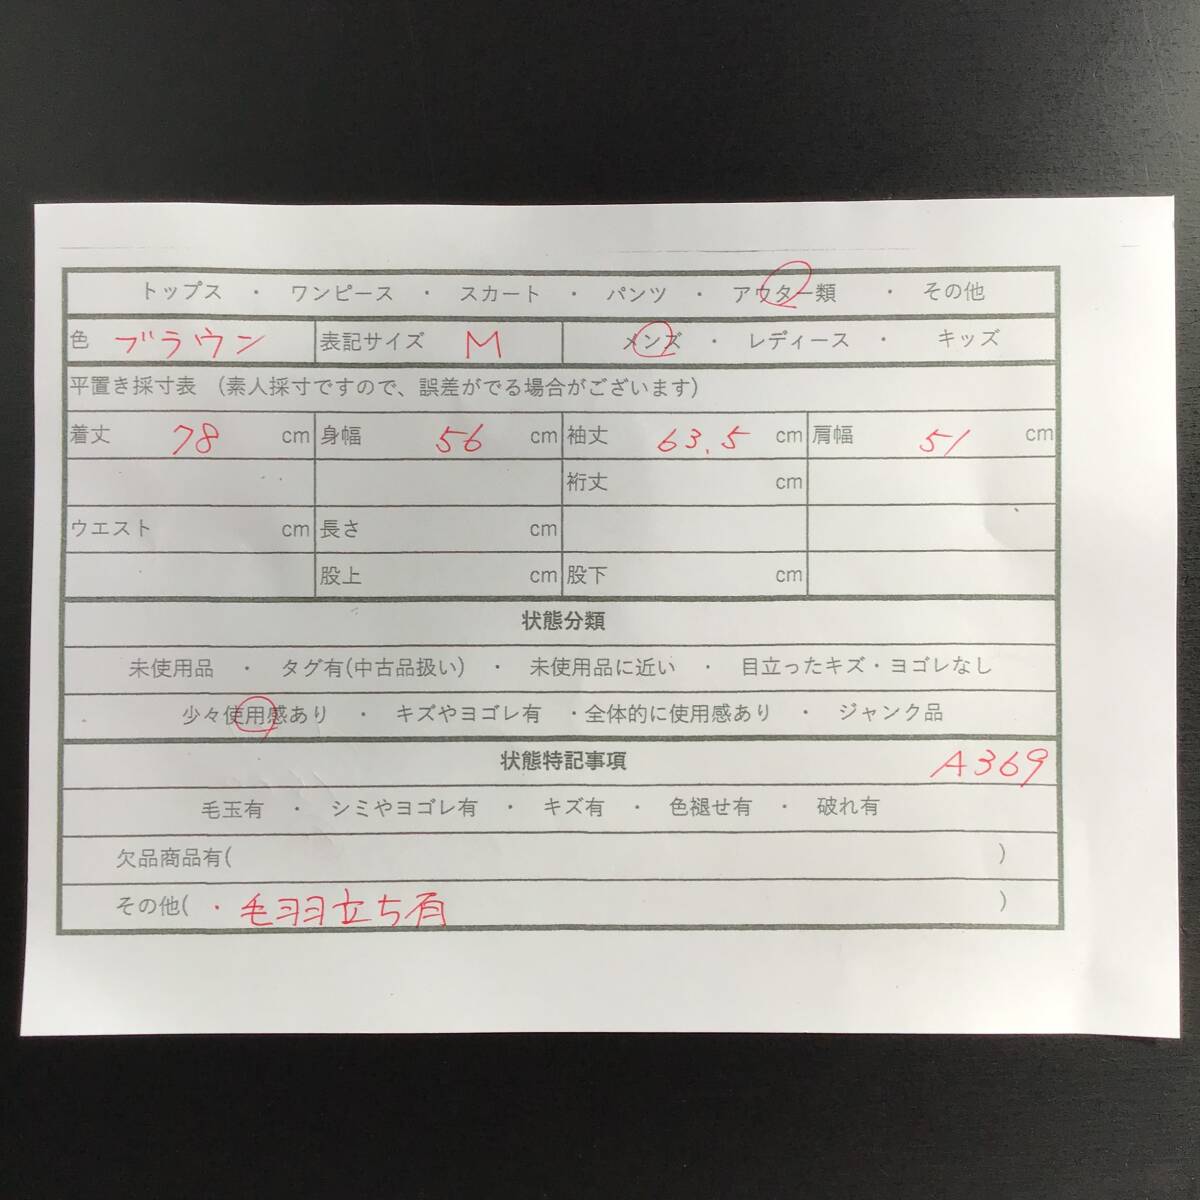 トップス ・ ワンピース ・ スカート ・ パンツ ・ アウター類 ・ その他
色 ブラウン 表記サイズ M メンズ ・ レディース ・ キッズ
平置き採寸表 (素人採寸ですので、誤差がでる場合がございます)
着丈 78 cm 身幅 56 cm 袖丈 63.5 cm 肩幅 51 cm
裄丈 cm
ウエスト cm 長さ cm
股上 cm 股下 cm
状態分類
未使用品 ・ タグ有(中古品扱い) ・ 未使用品に近い ・ 目立ったキズ・ヨゴレなし
少々使用感あり ・ キズやヨゴレ有 ・全体的に使用感あり ・ ジャンク品
状態特記事項 A369
毛玉有 ・ シミやヨゴレ有 ・ キズ有 ・ 色褪せ有 ・ 破れ有
欠品商品有( )
その他( ・毛羽立ち有 )